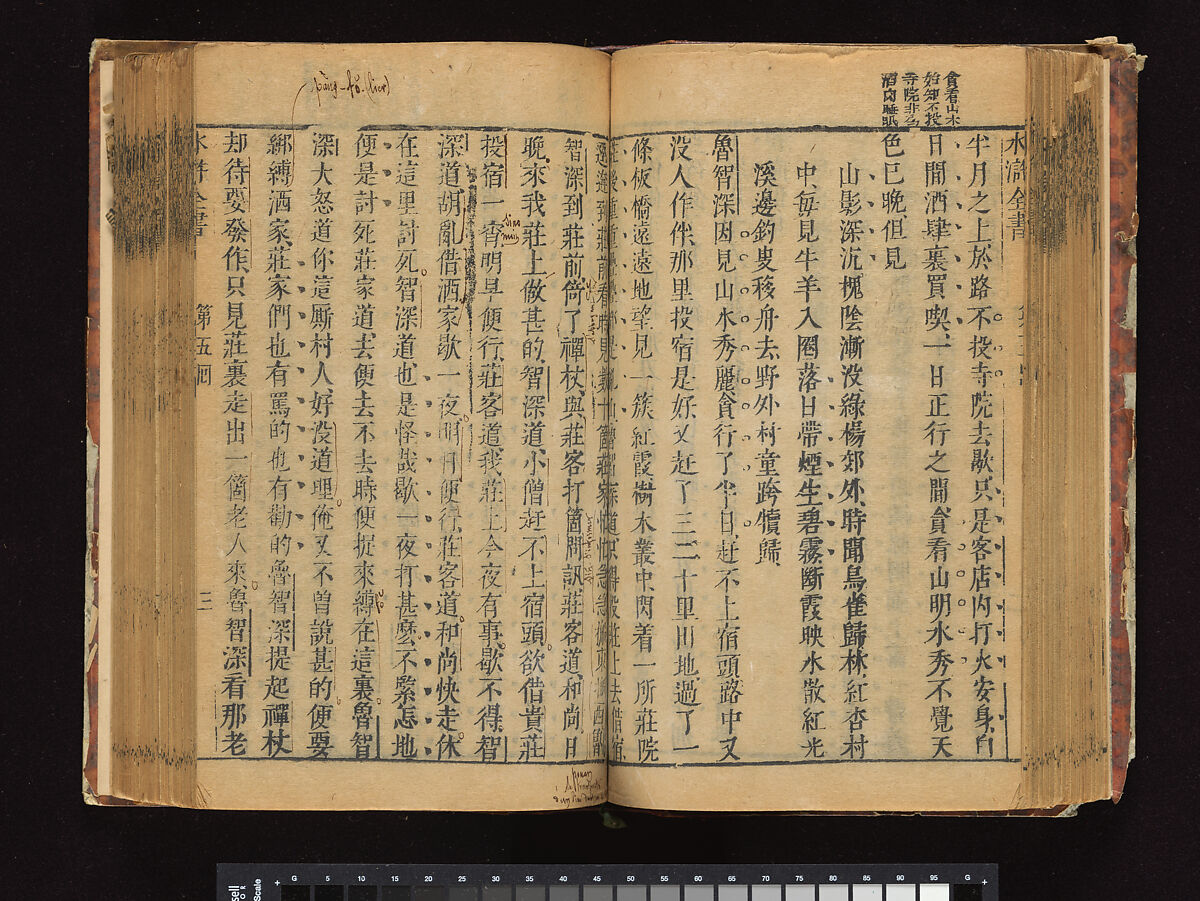 貪看山水
始知不投
寺院非為
酒肉睡眠
水滸全書
半月之上於路不投寺院去歇只是客店内打火安身白
日間酒肆裏買喫一日正行之間貪看山明水秀不覺天
色已晚但見
山影深沉槐陰漸没綠楊郊外時聞鳥雀歸林紅杏村
中每見牛羊入圈落日帶煙生碧霧斷霞映水散紅光
溪邊釣叟移舟去野外村童跨犢歸
魯智深因見山水秀麗貪行了半日赶不上宿頭路中又
没人作伴那里投宿是好又赶了三二十里田地過了一
條板橋遠遠地望見一簇紅霞樹木叢中閃着一所莊院
莊後重重疊疊都是亂山魯智深道只得投莊上去借宿
逕奔到莊前看時見數十箇莊家忙忙急急搬東搬西魯
智深到莊前倚了禪杖與莊客打箇問訊莊客道和尚日
晚來我莊上做甚的智深道小僧赶不上宿頭欲借貴莊
投宿一宵明早便行莊客道我莊上今夜有事歇不得智
深道胡亂借洒家歇一夜明日便行莊客道和尚快走休
在這里討死智深道也是怪哉歇一夜打甚麽不緊怎地
便是討死莊家道去便去不去時便捉來縛在這裏魯智
深大怒道你這厮村人好没道理俺又不曾說甚的便要
綁縛洒家莊家們也有罵的也有勸的魯智深提起禪杖
却待要發作只見莊裏走出一箇老人來魯智深看那老
水滸全書 第五回 三